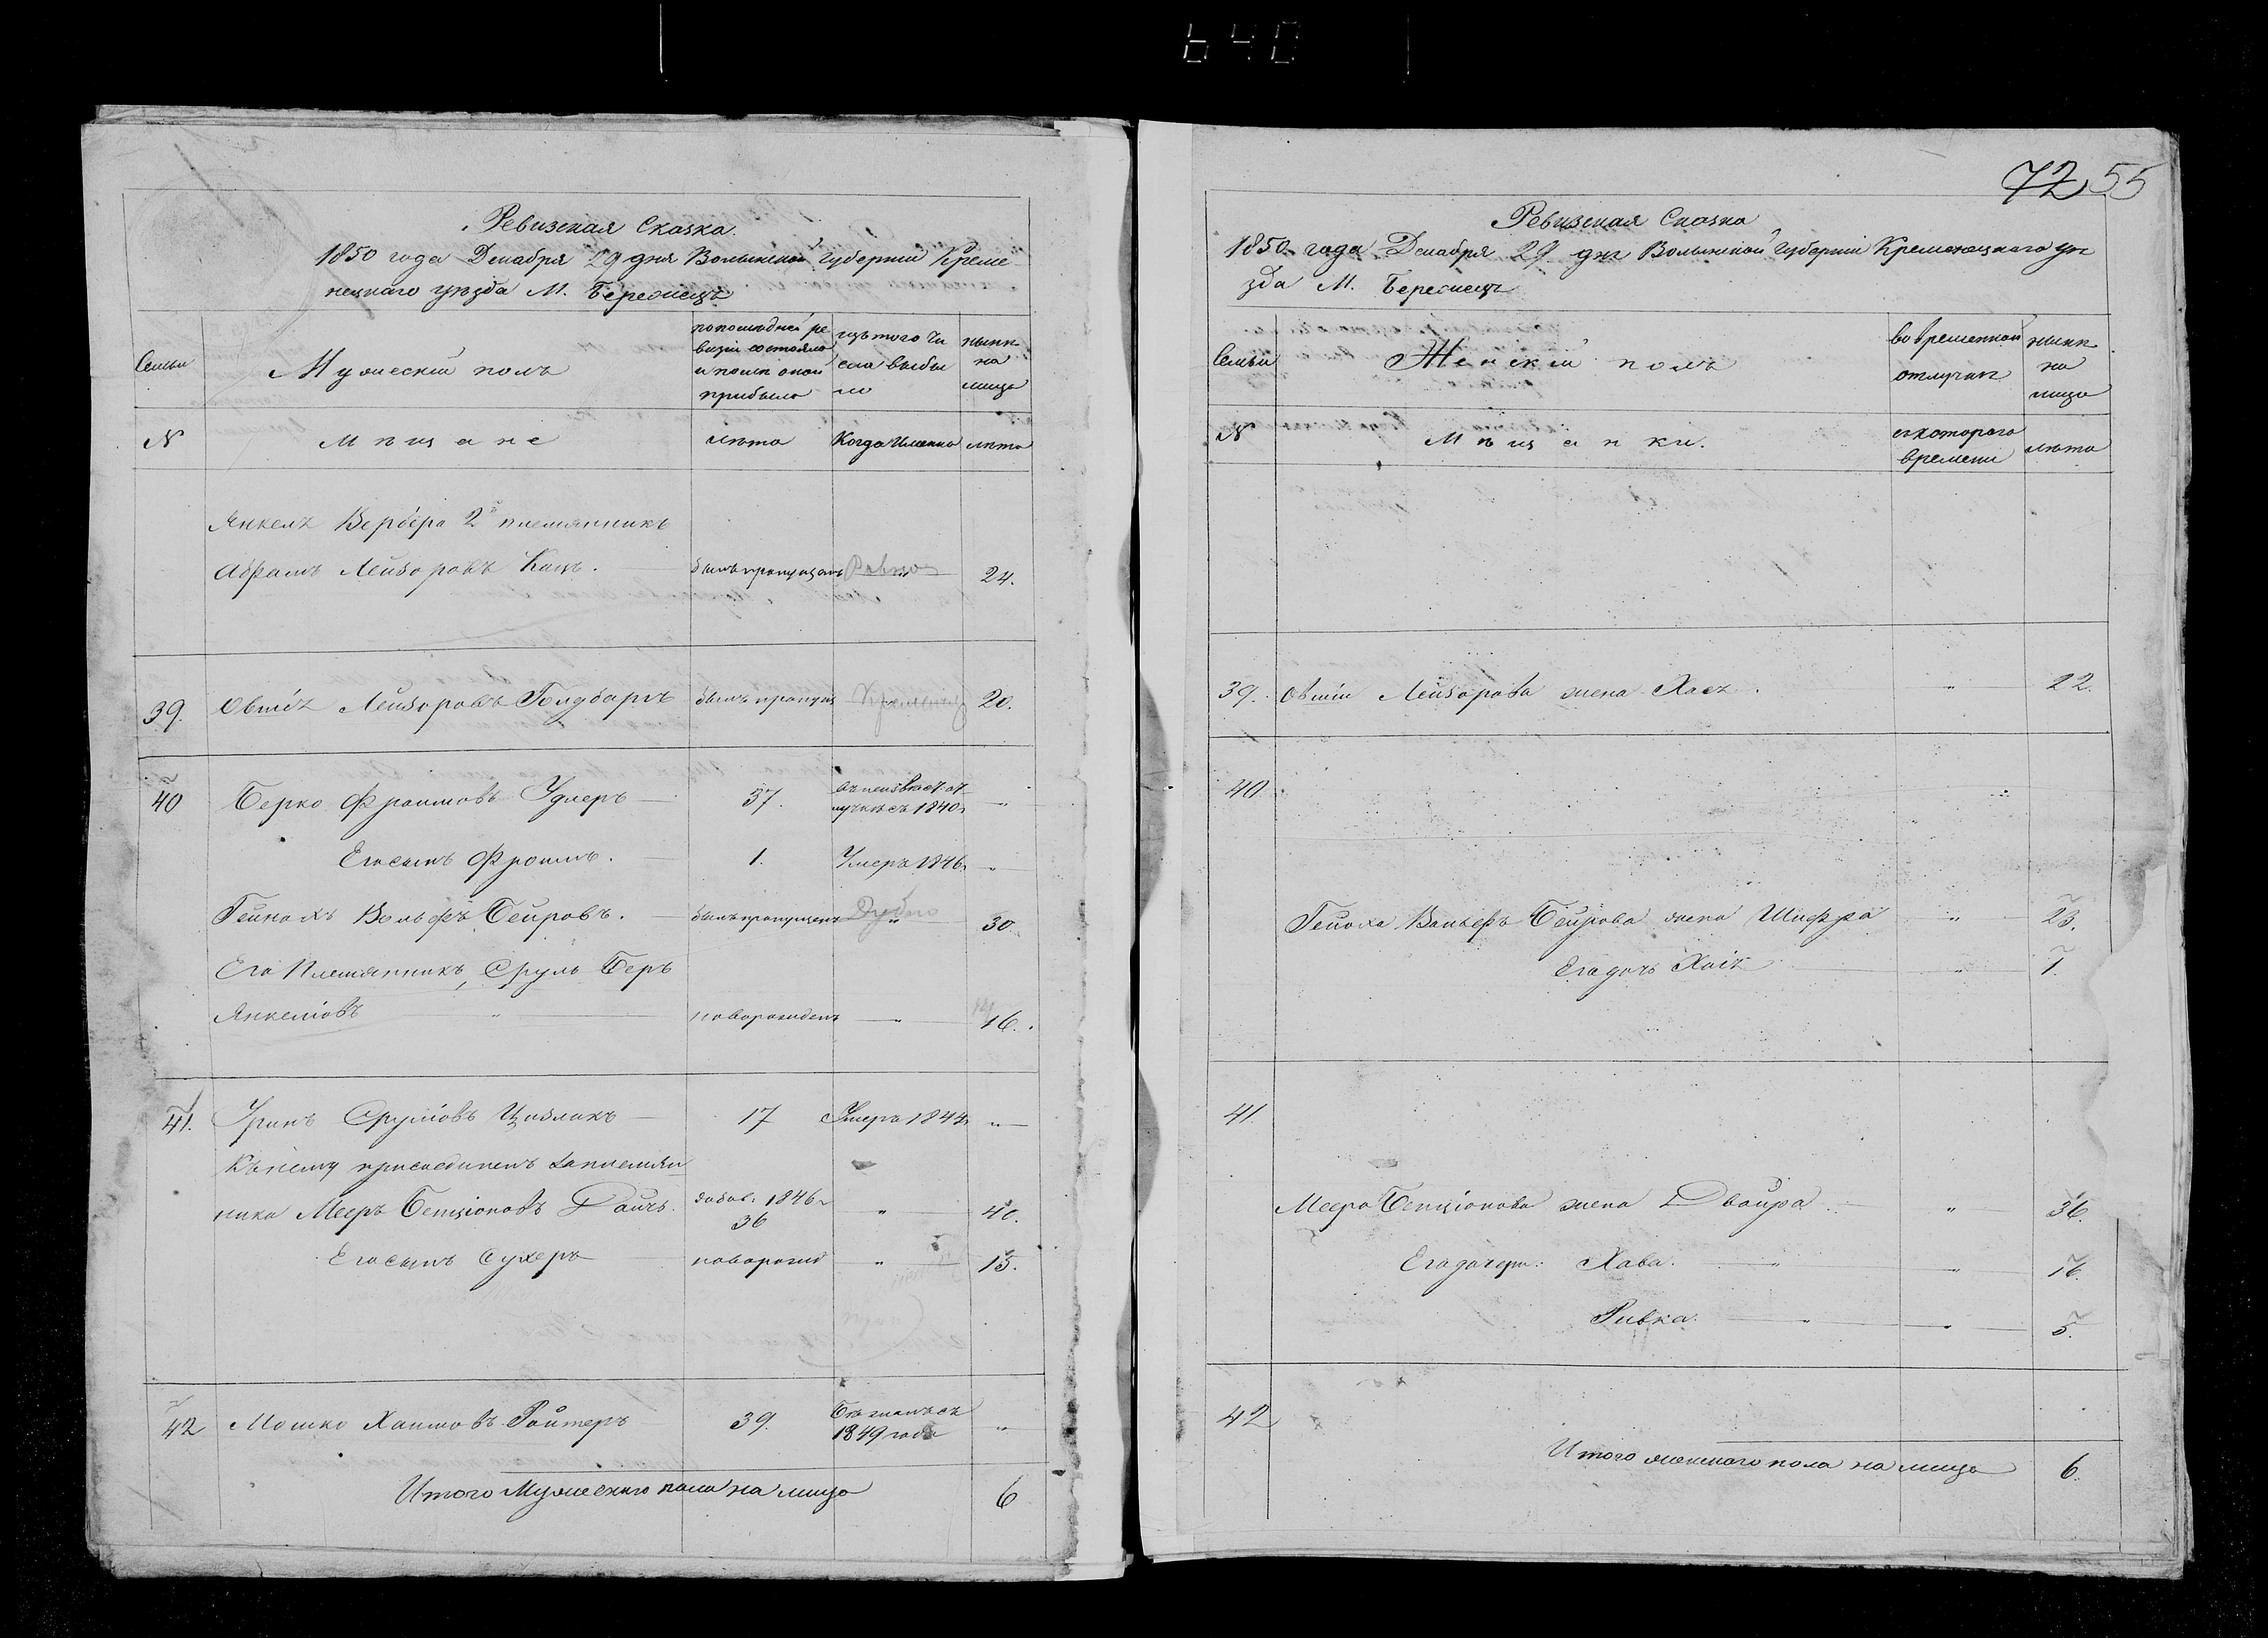 640
Ревизская Сказка.
1850 года Декабря 29 дня Волынской Губерніи Креме
нецкаго уѣзда М. Бережецъ
Семьи
Мужескій полъ
по последней ре
визіи состояло
и послѣ оной
прибыло
изъ того чи
сла выбы
ло
нынѣ
на
лицо
№
Мѣщане
лѣта
Когда именно
лѣта
Янкеля Вербера 2й племянникъ
Абрамъ Лейзоровъ Кацъ.
былъ пропущенъ
Ровно
24.
39.
Овшія Лейзоровъ Голдбаргъ
былъ пропущ
Кременец
20.
40
Берко Фроимовъ Удлеръ
37.
въ неизвѣст: от
лучкѣ съ 1840
"
Его сынъ Фроимъ.
1.
Умеръ 1846
"
Гейнохъ Вольфъ Бейровъ.
былъ пропущенъ
Дубно
30.
Его Племянникъ, Сруль Беръ
Янкеліовъ
"
новорожден
"
16.
41.
Сруліовъ
17
Умеръ 1844
"
Къ нему присоединенъ за племян
ника Мееръ Бенціоновъ Дайчъ.
добав: 1846
36
"
40.
Его сынъ Сухеръ
новорожд
"
15.
42
Мошко Хаимовъ Ройтеръ
39.
Бѣжалъ съ
1849 года
"
Итого Мужескаго пола на лицо
6
72 55
Ревизская Сказка
1850 года Декабря 29 дня Волынской Губерніи Кременецкаго уѣ
зда М. Бережецъ
Семьи
Женскій полъ
во временной
отлучкѣ
нынѣ
на
лицо
№
Мѣщанки.
съ котораго
времени
лѣта
39.
Овшіи Лейзорова жена Хася.
"
22.
40.
Гейноха Вольфъ Бейрова жена Шифра
"
23.
Его дочь Хаія
"
1.
41.
Меера Бенціонова жена Двойра
"
36.
Его дочери: Хава.
"
"
16.
Ривка.
"
"
5.
42
Итого женскаго пола на лицо
6.